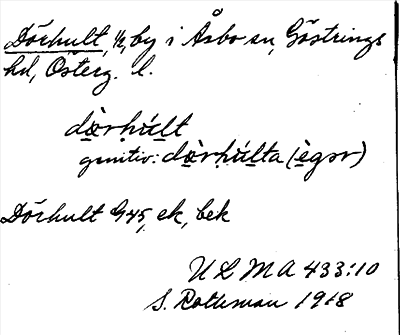 Dörhult, 1/2, by i Åsbo sn, Göstrings
hd, Österg. l.
dèrḥúlt
genitiv: dèrḥúlta (ègər)
Dörhult G45, ek, bek
ULMA 433:10
S. Rothman 1918